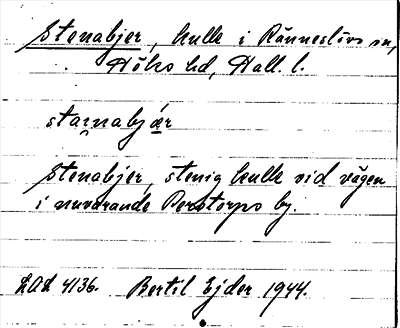 Stenabjer, kulle i Ränneslövs sn,
Höks hd, Hall. l.
stai̯nabjär
Stenabjer, stenig kulle vid vägen
i nuvarande Perstorps by.
LAL 4136. Bertil Ejder 1944.